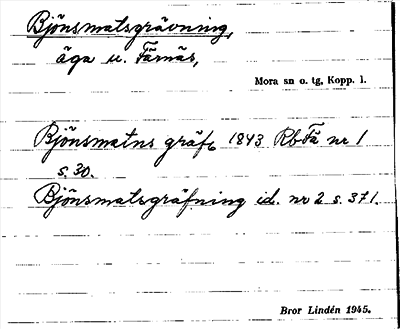 Bjönsmatsgrävning,
äga u. Färnäs,
Mora sn o. tg, Kopp. l.
Bjönsmatns gräfn 1843 Rb Fä nr 1
s. 30.
Bjönsmatsgräfning id. nr 2 s. 371.
Bror Lindén 1945.